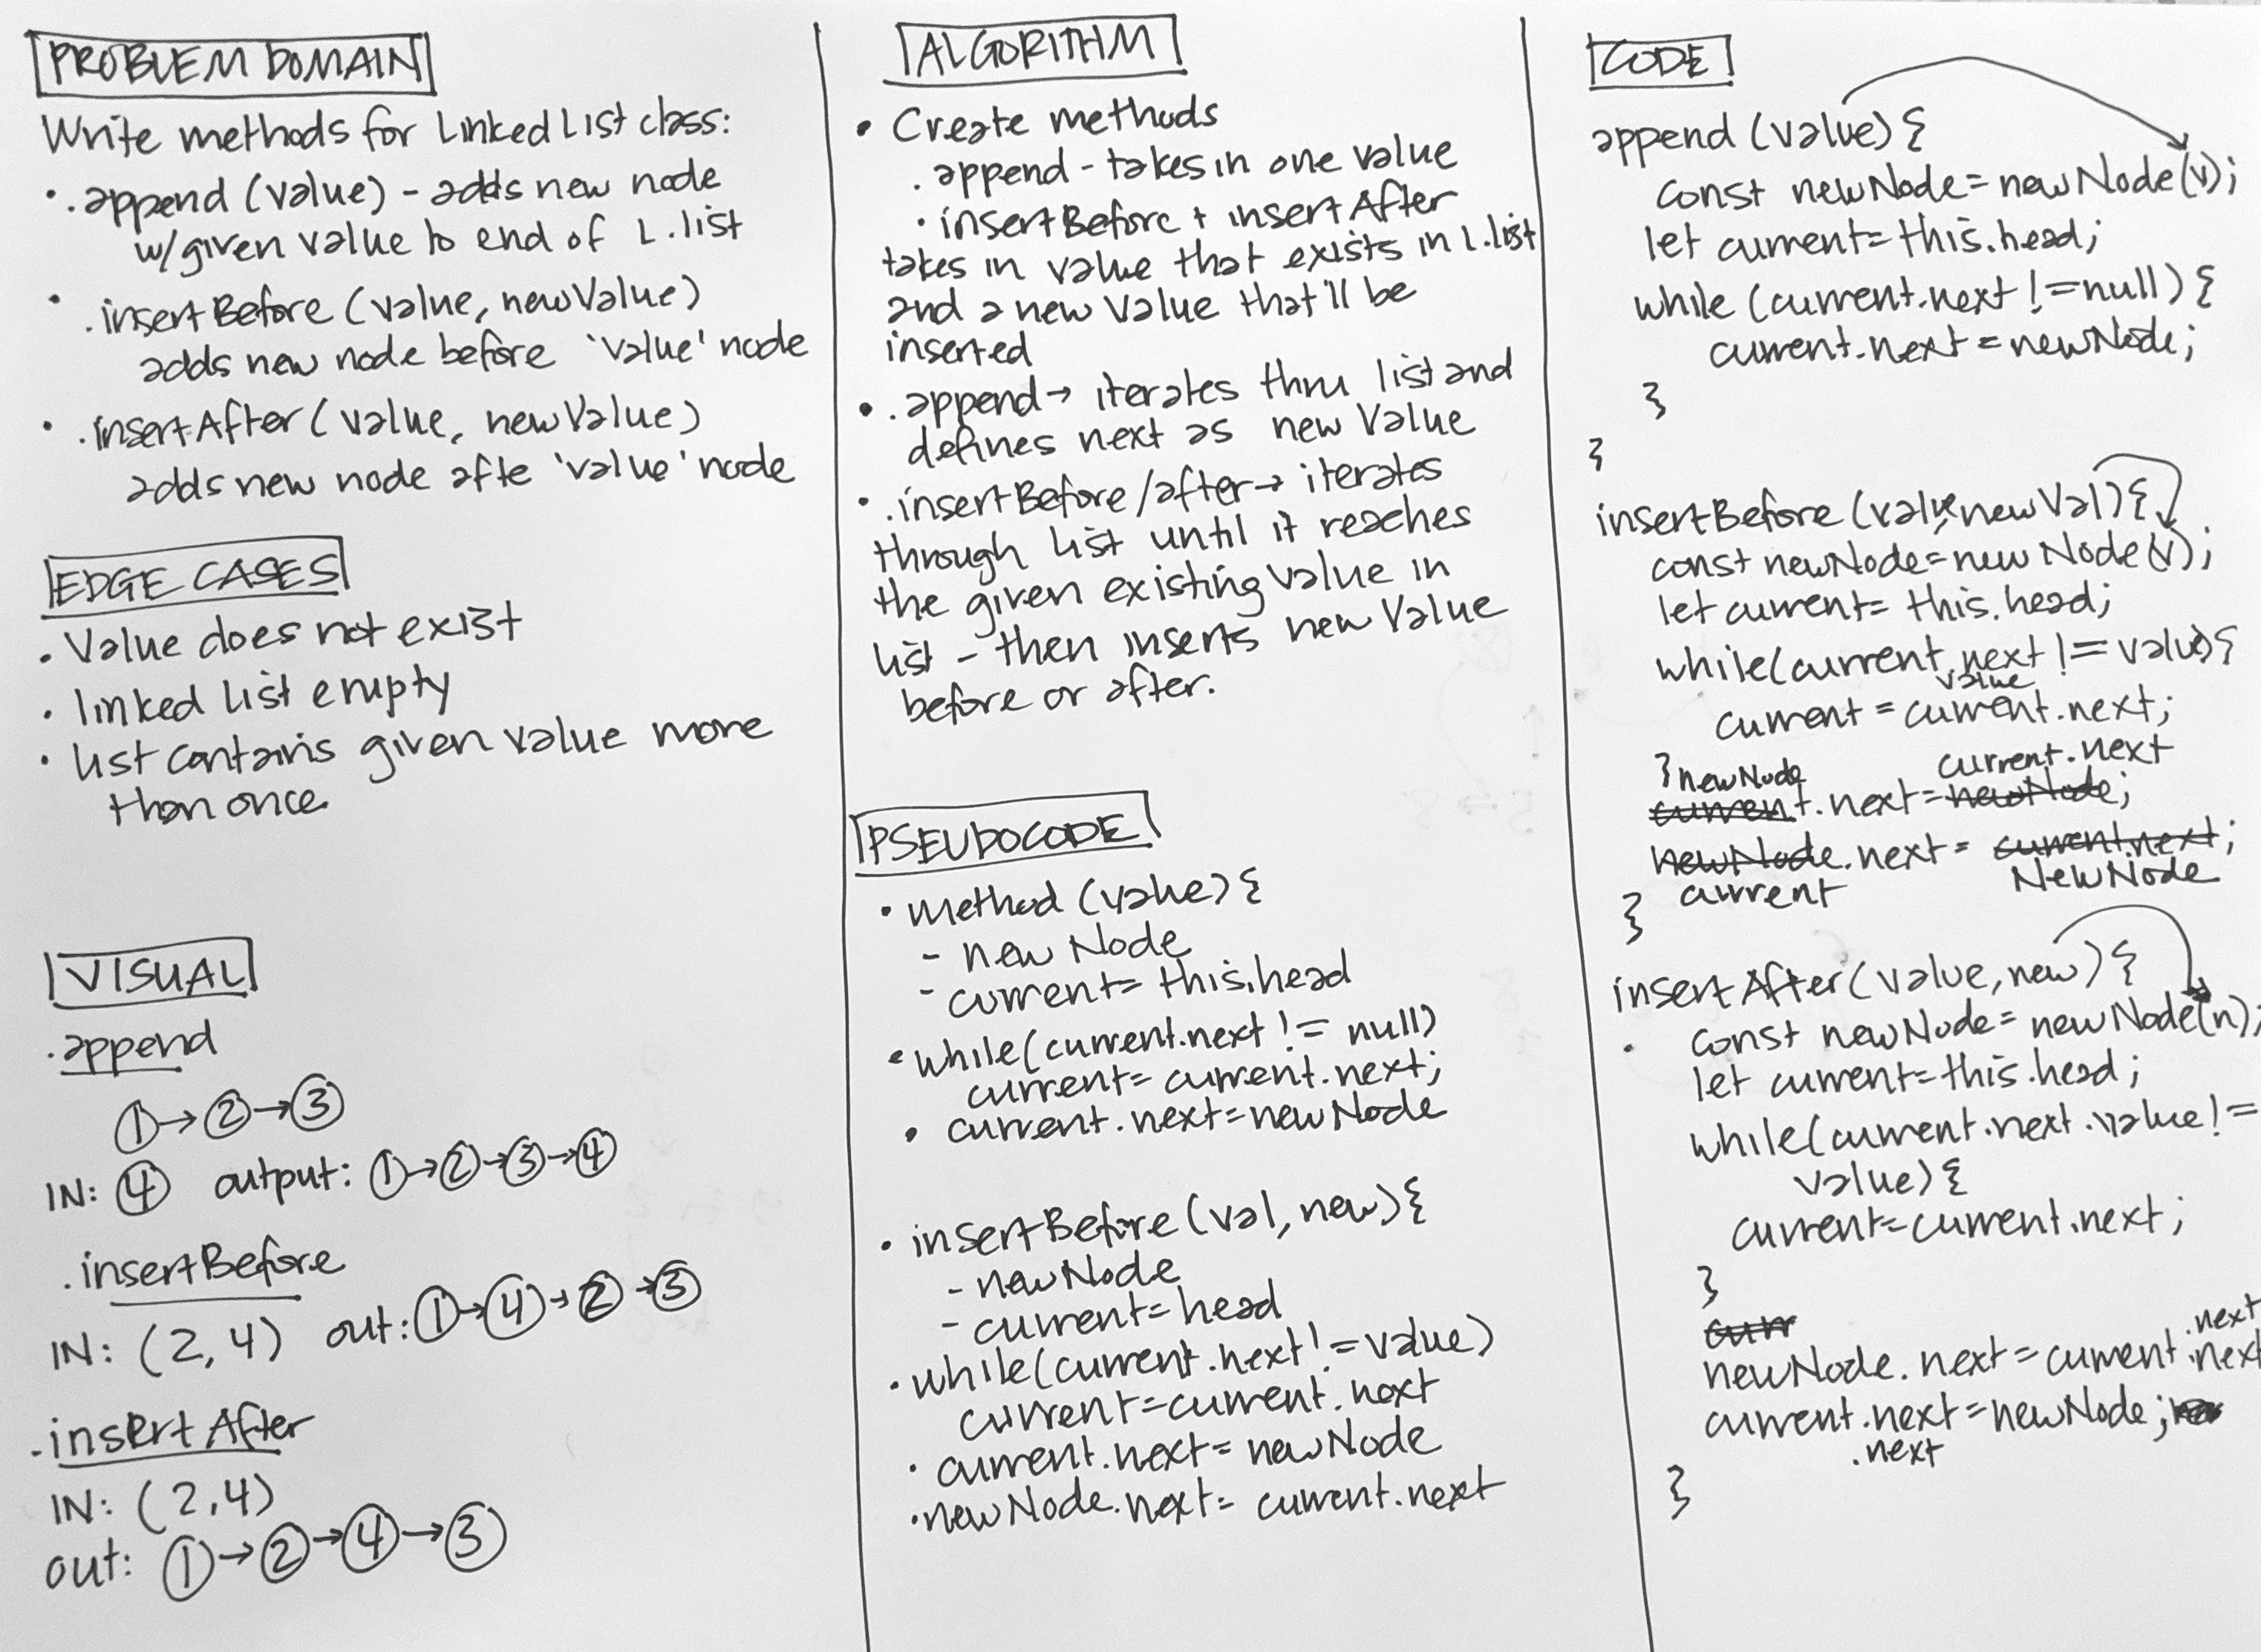 PROBLEM DOMAIN
Write methods for Linked List class:
• .append (value) - adds new node
w/given value to end of L.list
• .insertBefore (value, newValue)
adds new node before 'value' node
• .insertAfter (value, newValue)
adds new node afte 'value' node
EDGE CASES
• Value does not exist
• linked list empty
• list contains given value more
than once
VISUAL
.append
1→2→3
IN: 4 output: 1→2→3→4
.insertBefore
IN: (2,4) out: 1→4→2→3
.insertAfter
IN: (2,4)
out: 1→2→4→3
ALGORITHM
• Create methods
. append - takes in one value
• insertBefore + insertAfter
takes in value that exists in L.list
and a new value that'll be
inserted
• .append → iterates thru list and
defines next as new Value
• .insertBefore/after → iterates
through list until it reaches
the given existing value in
list - then inserts new Value
before or after.
PSEUDOCODE
• method (value) {
- new Node
- current= this.head
• while(current.next != null)
current= current.next;
• current.next=newNode
• insertBefore (val, new) {
- newNode
- current= head
• while(current.next != value)
current=current.next
• current.next= newNode
•newNode.next= current.next
CODE
append (value) {
const newNode= newNode(v);
let current= this.head;
while (current.next !=null) {
current.next = newNode;
}
}
insertBefore (value, newVal) {
const newNode=new Node(v);
let current= this.head;
while(current.next != value){
value
current = current.next;
} newNode current.next
current.next=newNode;
newNode.next= current.next;
current NewNode
}
insertAfter(value, new) {
• const newNode= newNode(n);
let current=this.head;
while(current.next.value !=
value) {
current=current.next;
}
curr
.next
newNode.next=current.next
current.next=newNode;
.next
}